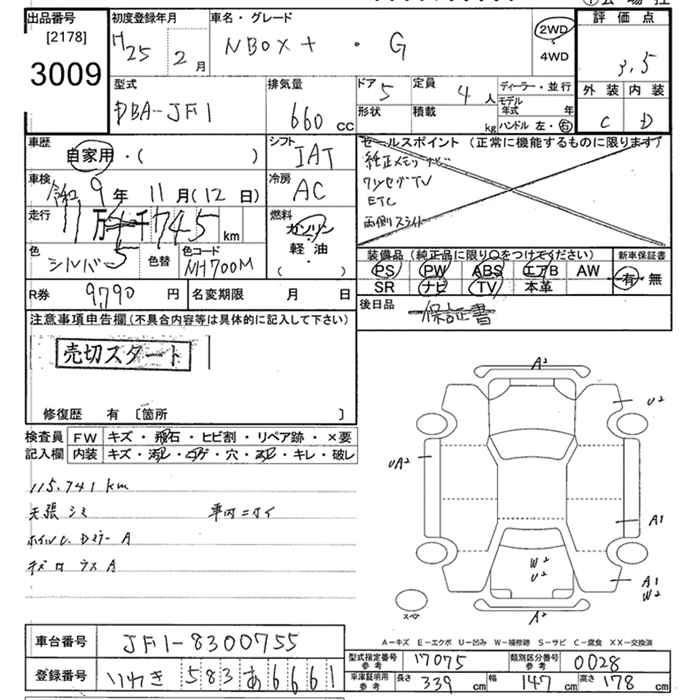 出品番号 初度登録年月 車名・グレード 評価点
[2178] H25 2月 NBOX+ ・ G 2WD 3.5
3009 4WD
型式 排気量 ドア 定員 ディーラー・並行 外装 内装
DBA-JF1 660cc 5 4人 モデル年式 年 C D
形状 積載 kg ハンドル 左・右
車歴 シフト セールスポイント (正常に機能するものに限ります)
自家用・( ) IAT 純正メモリナビ
車検 令和9年11月(12日) 冷房 AC ワンセグTV
走行 11万 745km 燃料 ガソリン ETC
5 軽・油 両側スライド
色 シルバー 色替 色コード NH700M ・( )
装備品 (純正品に限り○をつけてください) 新車保証書
R券 9,790円 名変期限 月 日 PS PW ABS エアB AW 有・無
SR ナビ TV 本革
注意事項申告欄(不具合内容等は具体的に記入して下さい) 後日品 保証書
売切スタート
修復歴 有 [箇所 ]
検査員 FW キズ・飛石・ヒビ割・リペア跡・×要
記入欄 内装 キズ・汚レ・コゲ・穴・スレ・キレ・破レ
115,741km
天張シミ 車内ニオイ
ホイルC. Dミラー A
A2
U2
UA2
A1
W2
U2
A1
W2
A2
スペア
A−キズ E−エクボ U−凹み W−補修跡 S−サビ C−腐食 XX−交換済
車台番号 JF1-8300755
型式指定番号 参考 17075 類別区分番号 参考 0028
登録番号 いわき 583 あ 6661
車庫証明用 参考 長さ 339cm 幅 147cm 高さ 178cm